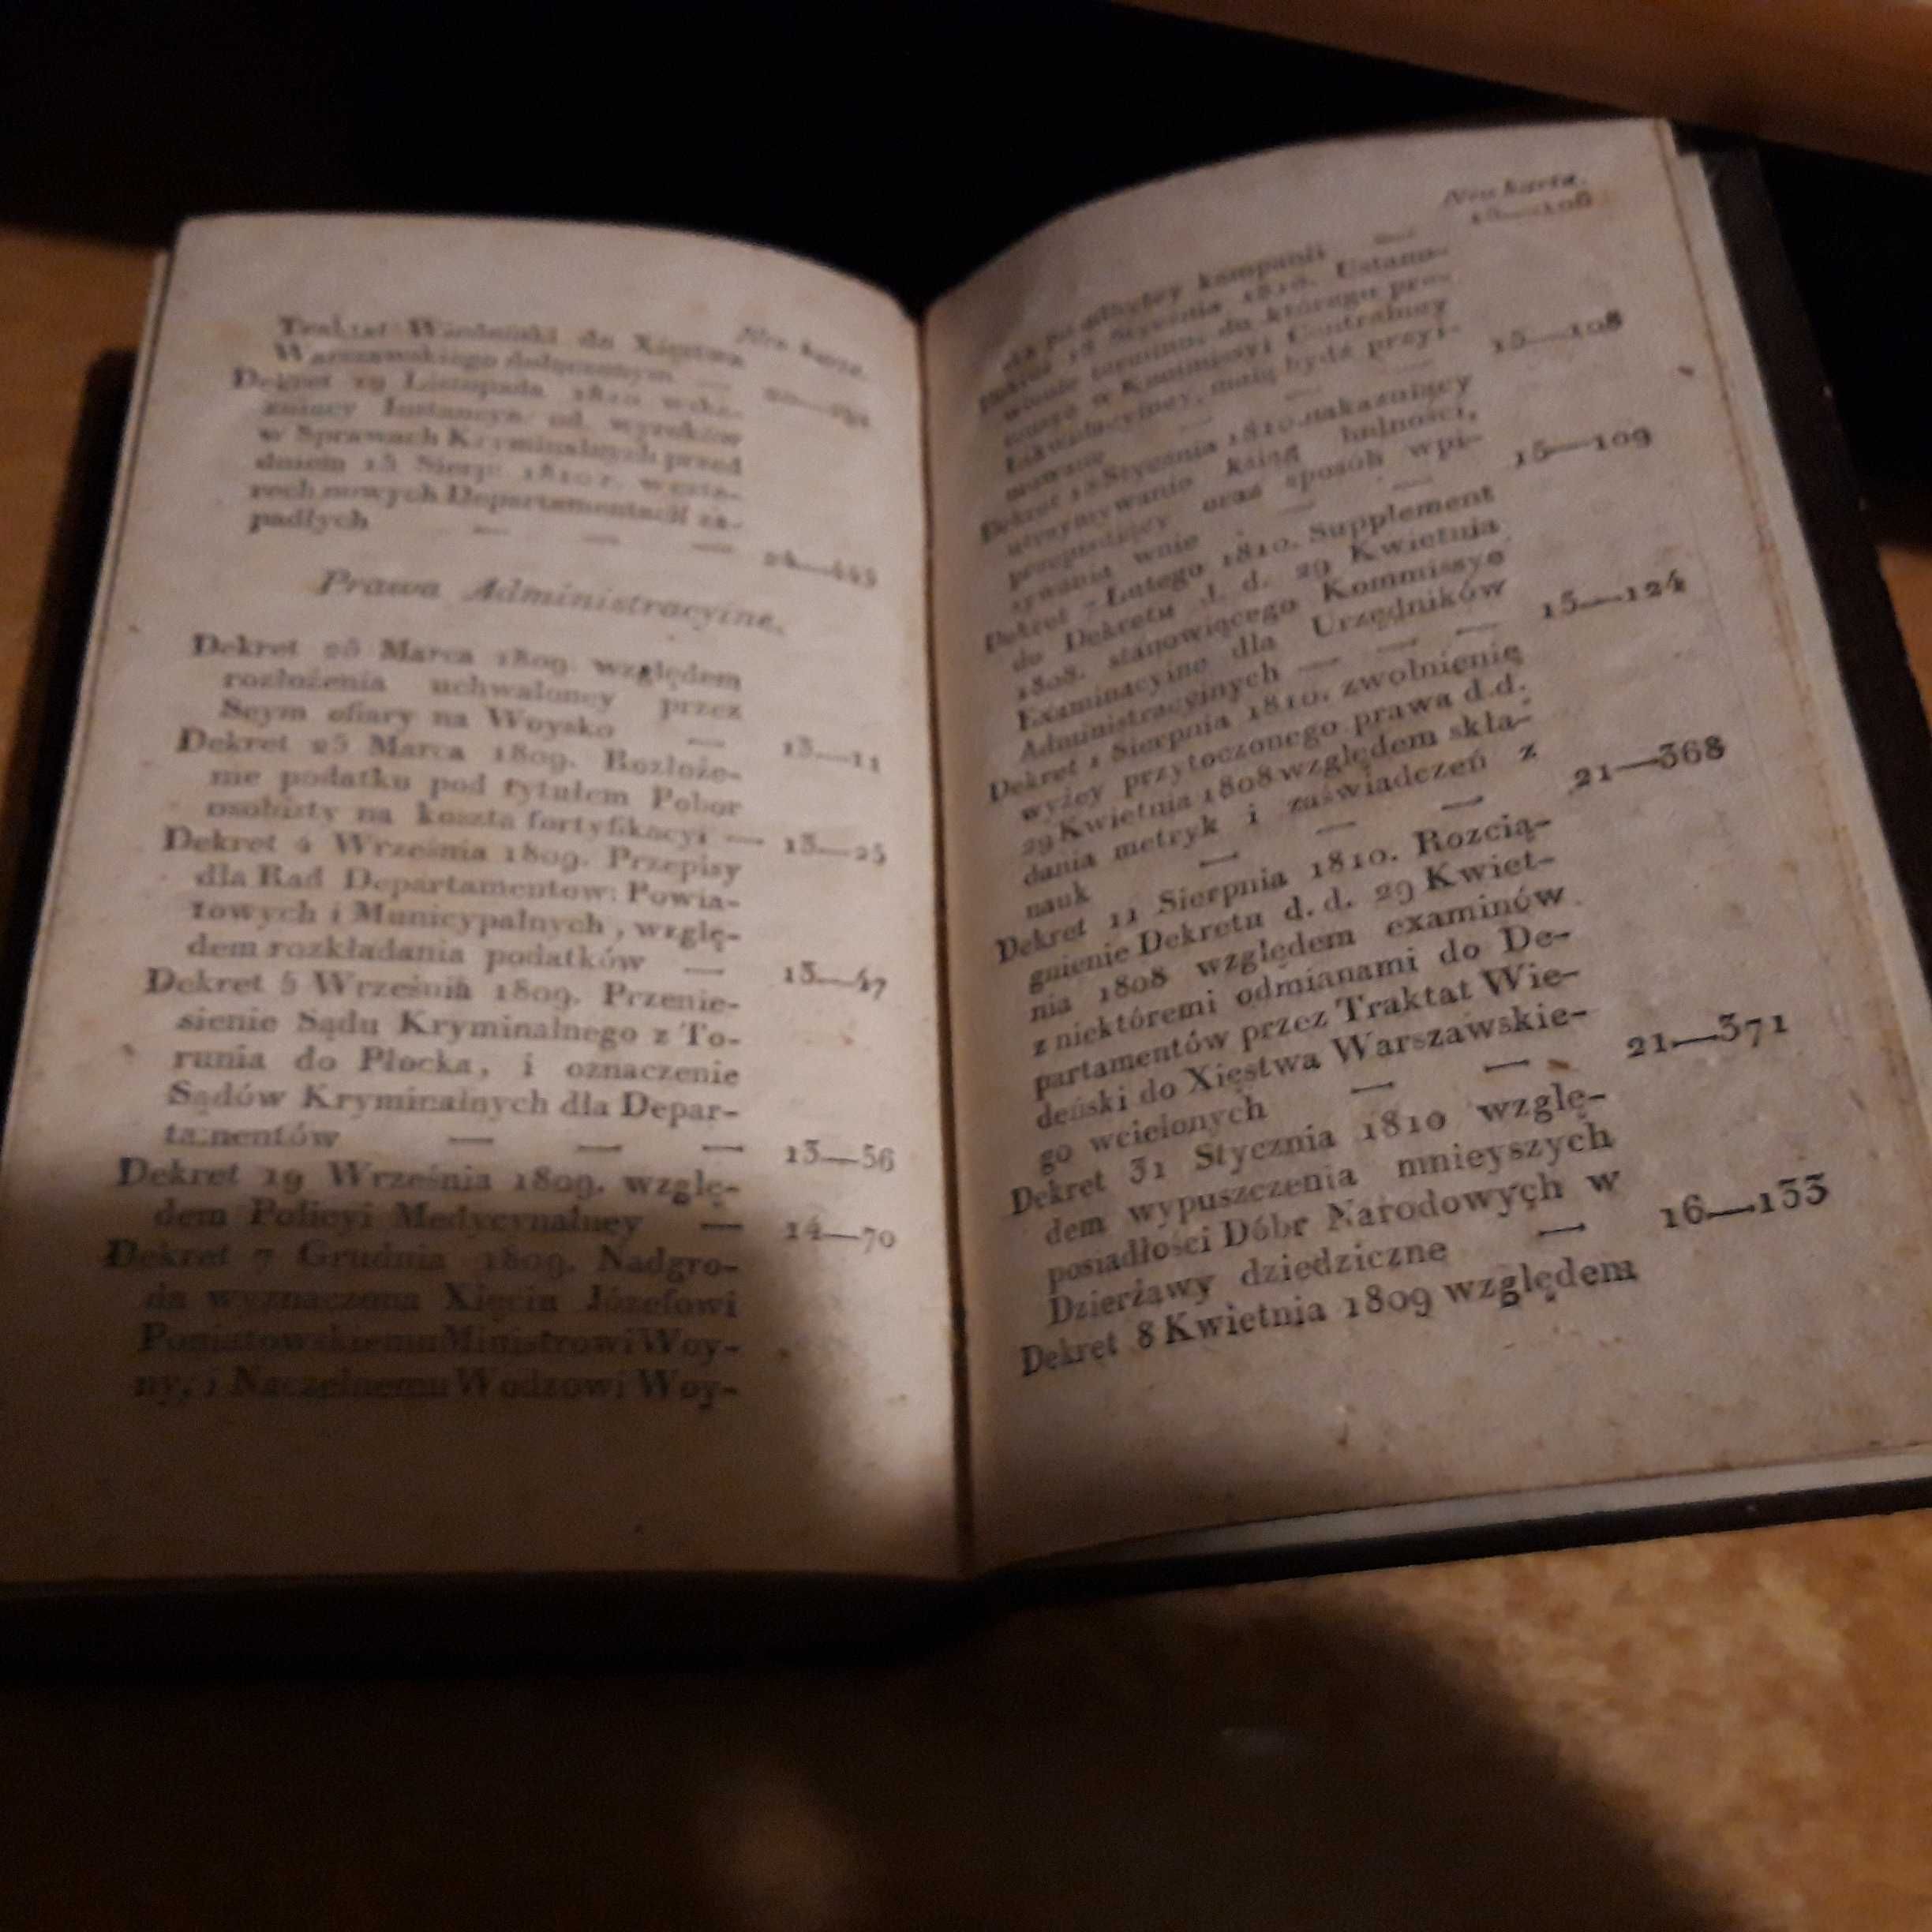 Nro karta.
Traktat Wiedeński do Xięstwa
Warszawskiego dołączonym —
Dekret 19 Listopada 1810 wska-
zuiący Instancyą od wyroków
w Sprawach Kryminalnych przed
dniem 15 Sierp: 1810 r. w czte-
rech nowych Departamentach za-
padłych — — — 24—443
Prawa Administracyine.
Dekret 25 Marca 1809. względem
rozłożenia uchwaloney przez
Seym ofiary na Woysko — 13—11
Dekret 25 Marca 1809. Rozłoże-
nie podatku pod tytułem Pobor
osobisty na koszta fortyfikacyi — 13—25
Dekret 4 Września 1809. Przepisy
dla Rad Departamentow: Powia-
towych i Municypalnych, wzglę-
dem rozkładania podatków — 13—47
Dekret 5 Września 1809. Przenie-
sienie Sądu Kryminalnego z To-
runia do Płocka, i oznaczenie
Sądów Kryminalnych dla Depar-
tamentów — — — 13—56
Dekret 19 Września 1809. wzglę-
dem Policyi Medycynalney — 14—70
Dekret 7 Grudnia 1809. Nadgro-
da wyznaczona Xięciu Józefowi
Poniatowskiemu Ministrowi Woy-
ny, i Naczelnemu Wodzowi Woy-
Nro karta.
ska po odbytey kampanii — 15—106
Dekret 18 Stycznia 1810. Ustano-
wienie terminu, do którego pre-
w Kommissyi Centralney
Likwidacyiney, maią bydź przyi-
mowane — — 15—108
Dekret 18 Stycznia 1810. nakazuiący
utrzymywanie ksiąg ludności,
oraz sposób wpi-
sywania w nie — — 15—109
Dekret 7 Lutego 1810. Supplement
do Dekretu d. d. 29 Kwietnia
1808. stanowiącego Kommissye
Examinacyine dla Urzędników
Administracyinych — — — 15—124
Dekret 1 Sierpnia 1810. zwolnienię
wyżey przytoczonego prawa d. d.
29 Kwietnia 1808 względem skła-
dania metryk i zaświadczeń z
nauk — — — 21—368
Dekret 11 Sierpnia 1810. Rozcią-
gnienie Dekretu d. d. 29 Kwiet-
nia 1808 względem examinów
z niektóremi odmianami do De-
partamentów przez Traktat Wie-
deński do Xięstwa Warszawskie-
go wcielonych — — 21—371
Dekret 31 Stycznia 1810 wzglę-
dem wypuszczenia mnieyszych
posiadłości Dóbr Narodowych w
Dzierżawy dziedziczne — 16—133
Dekret 8 Kwietnia 1809 względem